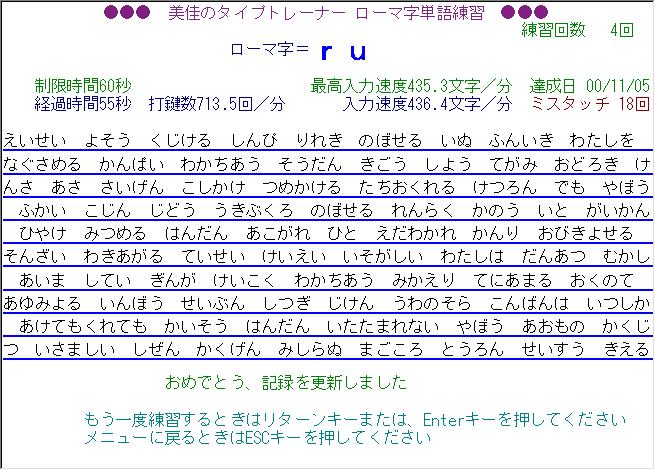 ●●● 美佳のタイプトレーナー ローマ字単語練習 ●●●
練習回数 4回
ローマ字＝ｒｕ
制限時間60秒 最高入力速度435.3文字／分 達成日 00/11/05
経過時間55秒 打鍵数713.5回／分 入力速度436.4文字／分 ミスタッチ 18回
えいせい よそう くじける しんぴ りれき のぼせる いぬ ふんいき わたしを
なぐさめる かんぱい わかちあう そうだん きごう しよう てがみ おどろき け
んさ あさ さいげん こしかけ つめかける たちおくれる けつろん でも やぼう
ふかい こじん じどう うきぶくろ のぼせる れんらく かのう いと がいかん
ひやけ みつめる はんだん あこがれ ひと えだわかれ かんり おびきよせる
そんざい わきあがる ていせい けいえい いそがしい わたしは だんあつ むかし
あいま してい ぎんが けいこく わかちあう みかえり てにあまる おくのて
あゆみよる いんぼう せいぶん しつぎ じけん うわのそら こんばんは いつしか
あけてもくれても かいそう はんだん いたたまれない やぼう あおもの かくじ
つ いさましい しぜん かくげん みしらぬ まごころ とうろん せいすう きえる
おめでとう、記録を更新しました
もう一度練習するときはリターンキーまたは、Enterキーを押してください
メニューに戻るときはESCキーを押してください